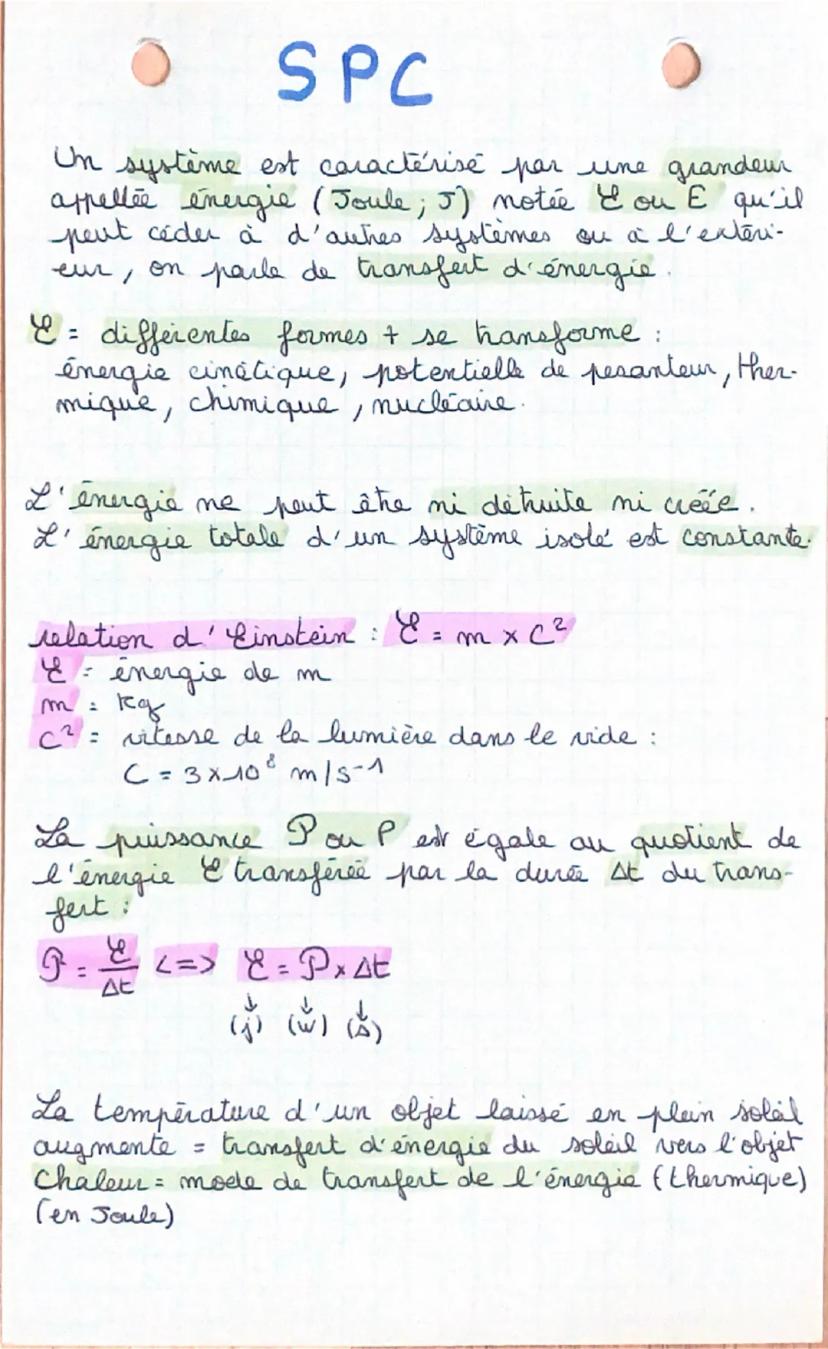 SPC
Un système est caractérisé par une grandeur
appellée énergie (Joule ; J) notée ℰ ou E qu'il
peut céder à d'autres systèmes ou à l'extéri-
eur, on parle de transfert d'énergie.
ℰ = différentes formes + se transforme :
énergie cinétique, potentielle de pesanteur, ther-
mique, chimique, nucléaire.
L'énergie ne peut être ni détruite ni créée.
L'énergie totale d'un système isolé est constante.
relation d'Einstein : ℰ = m x C²
ℰ = énergie de m
m = Kg
C² = vitesse de la lumière dans le vide :
C = 3 x 10⁸ m/s⁻¹
La puissance 𝒫 ou P est égale au quotient de
l'énergie ℰ transférée par la durée Δt du trans-
fert :
𝒫 = ℰ/Δt <=> ℰ = 𝒫 x Δt
(j) (w) (s)
La température d'un objet laissé en plein soleil
augmente = transfert d'énergie du soleil vers l'objet
Chaleur = mode de transfert de l'énergie (thermique)
(en Joule)